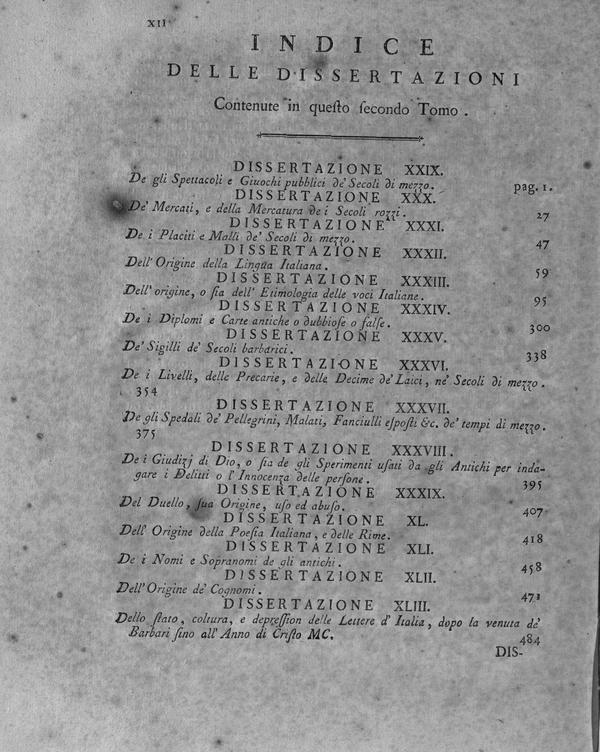 XII
INDICE
DELLE DISSERTAZIONI
Contenute in queſto ſecondo Tomo.
DISSERTAZIONE XXIX.
De gli Spettacoli e Giuochi pubblici de' Secoli di mezzo. pag. 1.
DISSERTAZIONE XXX.
De' Mercati, e della Mercatura de i Secoli rozzi. 27
DISSERTAZIONE XXXI.
De i Placiti e Malli de' Secoli di mezzo. 47
DISSERTAZIONE XXXII.
Dell'Origine della Lingua Italiana. 59
DISSERTAZIONE XXXIII.
Dell'origine, o ſia dell'Etimologia delle voci Italiane. 95
DISSERTAZIONE XXXIV.
De i Diplomi e Carte antiche o dubbioſe o falſe. 300
DISSERTAZIONE XXXV.
De' Sigilli de' Secoli barbarici. 338
DISSERTAZIONE XXXVI.
De i Livelli, delle Precarie, e delle Decime de' Laici, ne' Secoli di mezzo.
354
DISSERTAZIONE XXXVII.
De gli Spedali de' Pellegrini, Malati, Fanciulli eſpoſti &c. de' tempi di mezzo.
375
DISSERTAZIONE XXXVIII.
De i Giudizj di Dio, o ſia de gli Sperimenti uſati da gli Antichi per inda-
gare i Delitti o l'Innocenza delle perſone. 395
DISSERTAZIONE XXXIX.
Del Duello, ſua Origine, uſo ed abuſo. 407
DISSERTAZIONE XL.
Dell'Origine della Poeſia Italiana, e delle Rime. 418
DISSERTAZIONE XLI.
De i Nomi e Soprannomi de gli antichi. 458
DISSERTAZIONE XLII.
Dell'Origine de' Cognomi. 471
DISSERTAZIONE XLIII.
Dello ſtato, coltura, e depreſſion delle Lettere d'Italia, dopo la venuta de'
Barbari ſino all'Anno di Criſto MC. 484
DIS-